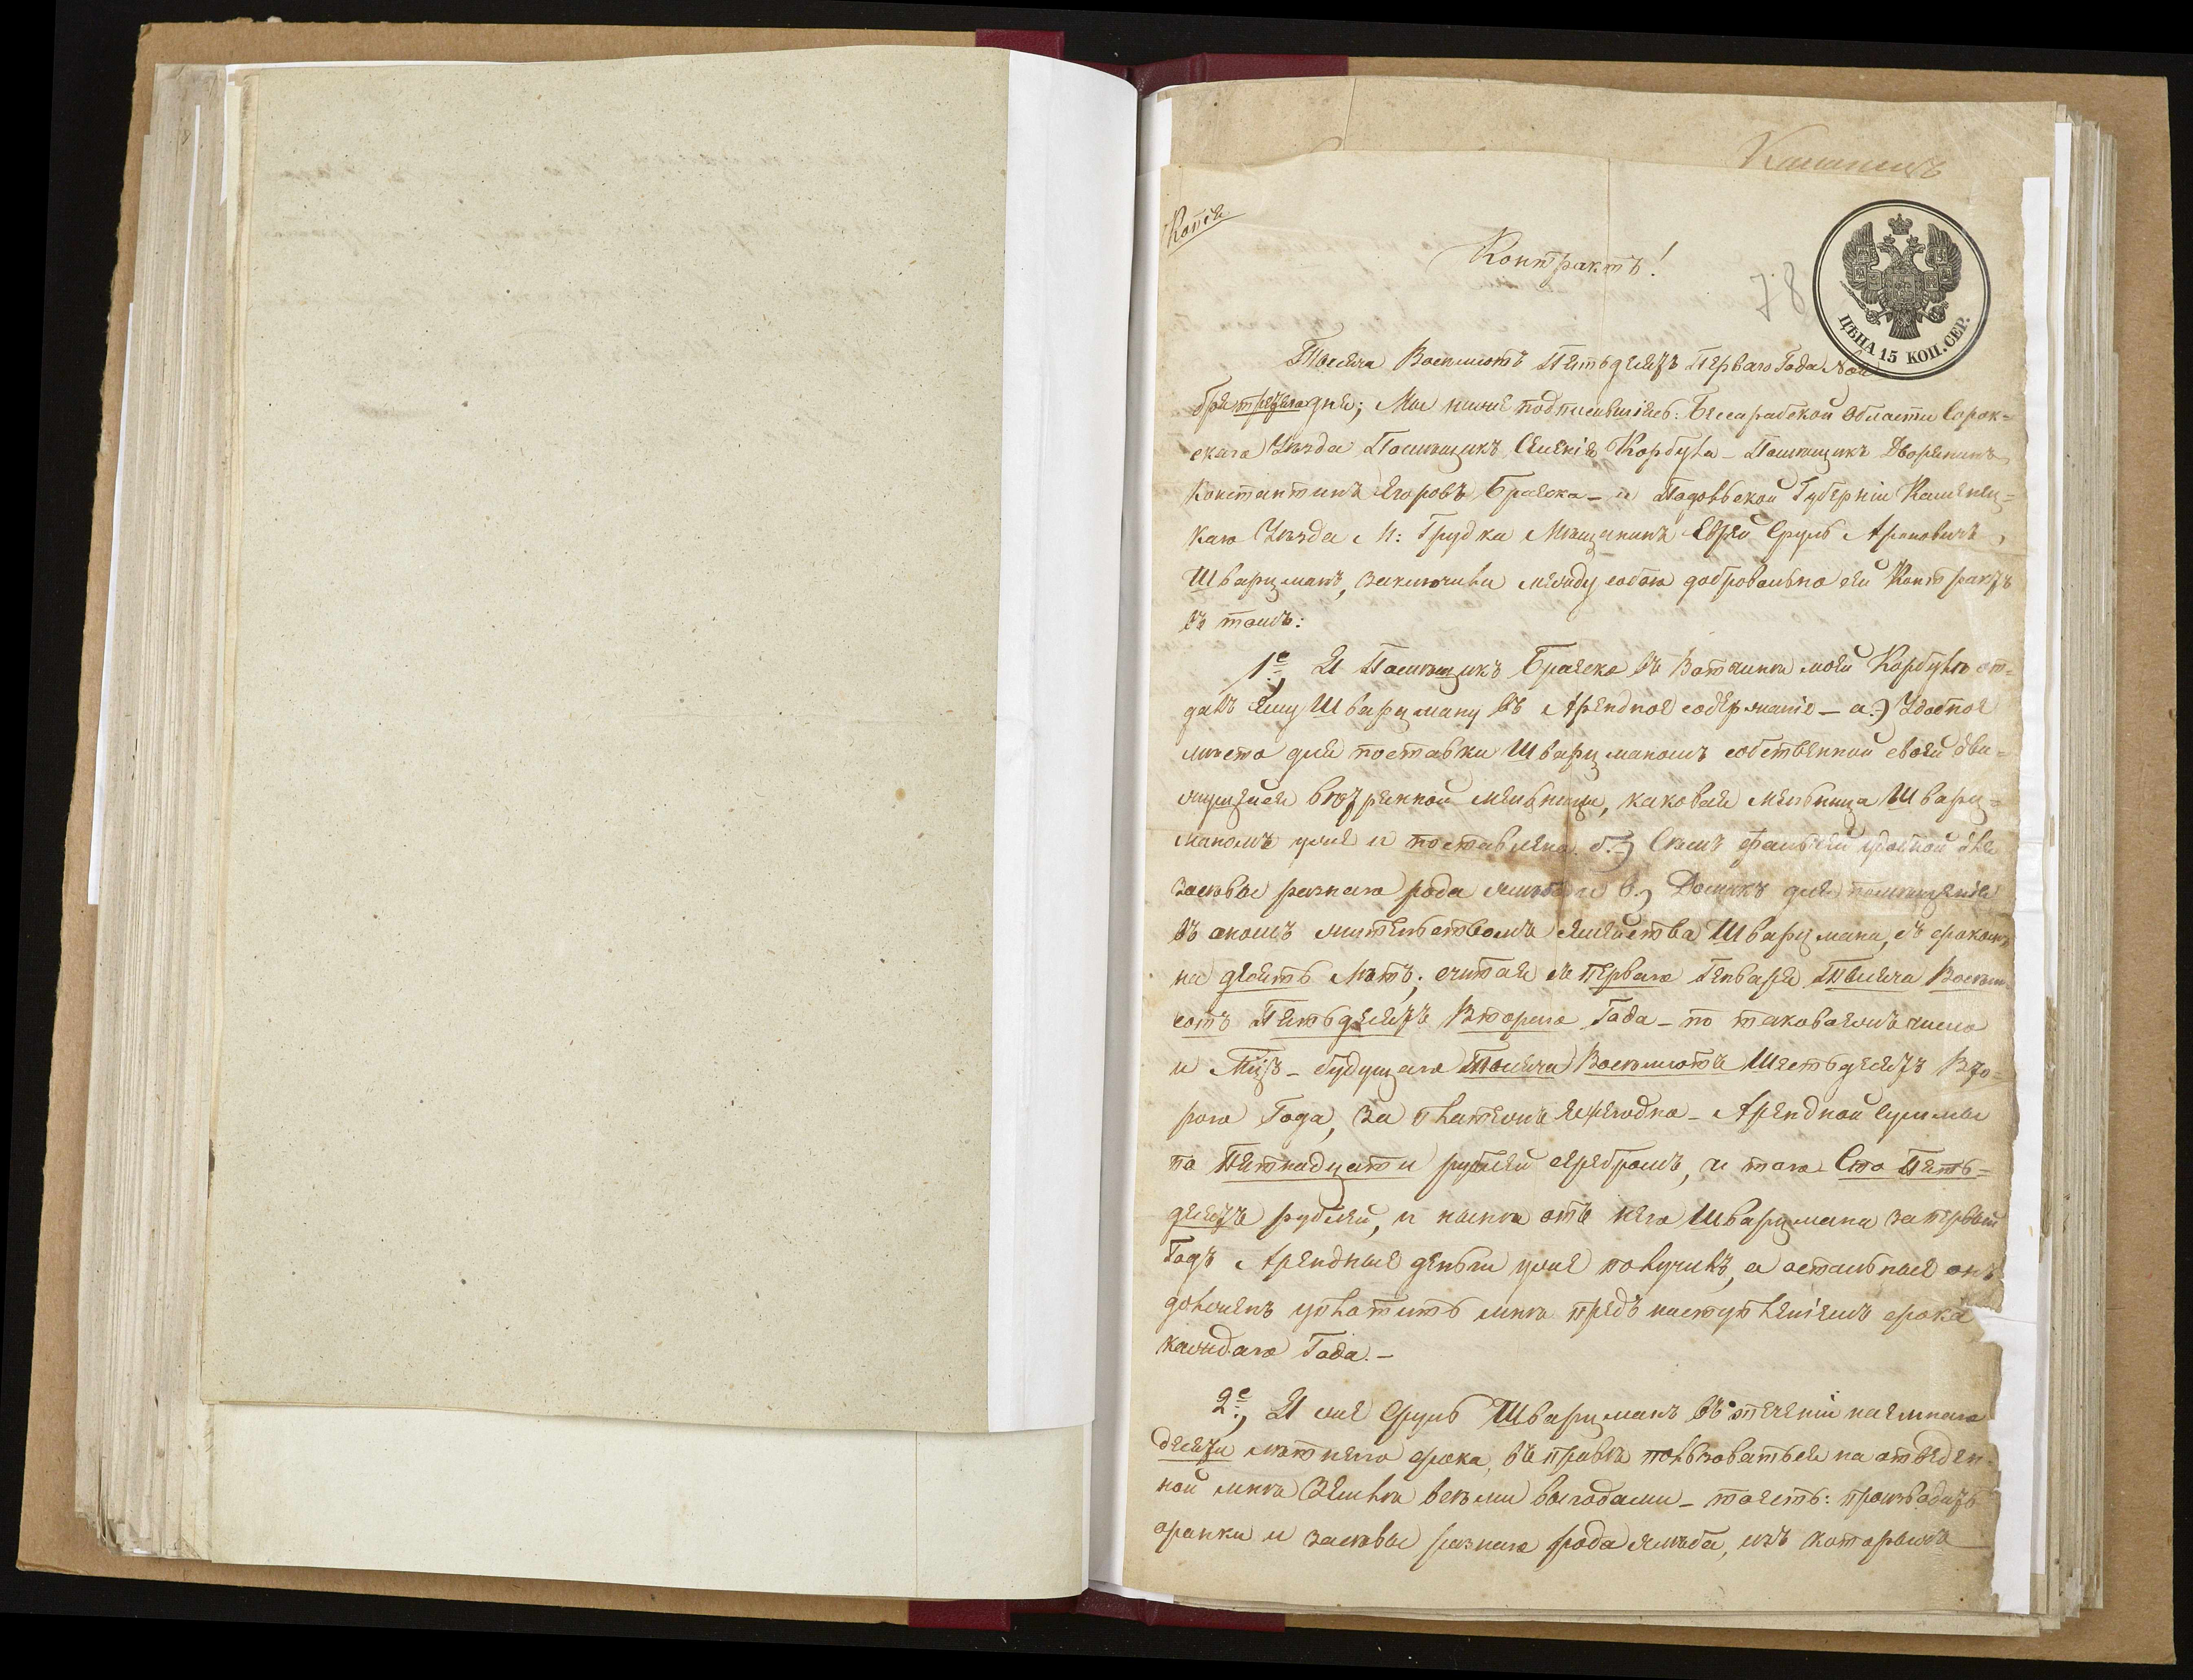 Копія
Контрактъ!
78
ЦѢНА 15 КОП. СЕР.
Тысяча Восемьсотъ Пятьдесятъ Перваго Года Ноя
бря третяго дня; Мы ниже подписавшіясь: Бессарабской Области Сорок=
скаго Уѣзда Помѣщикъ Селенія Корбула - Помѣщикъ Дворянинъ
Константинъ Егоровъ Браеска - и Подольской Губерніи Каменец=
каго Уѣзда М: Грудка Мѣщанинъ Еврей Сруль Ароновичъ
Шварцманъ, заключили между собою добровольно сей Контрактъ
въ томъ:
1е, Я Помѣщикъ Браеско въ Вотчинѣ моей Корбулѣ от=
далъ ему Шварцману въ Арендное содержаніе - а.) Удобное
мѣсто для поставки Шварцманомъ собственной своей дви=
жущейся вѣтренной мельницы, каковая мельница Шварц=
маномъ уже и поставлена. б.) фальчей для
засѣвы разнаго рода хлѣба и в.) Домикъ для помѣщенія
въ ономъ жительствомъ семейства Шварцмана, съ срокомъ
на десять лѣтъ; считая съ перваго Генваря Тысяча Восемь
сотъ Пятьдесятъ Втораго Года - по таковоежъ число
и Мцъ - будущаго Тысяча Восемьсотъ Шестьдесятъ Вто=
рого Года, за платежъ ежегодно - Арендной Суммы
по Пятнадцати рублей серебромъ, и того Сто Пять=
десятъ рублей, и нынѣ отъ него Шварцмана за первый
Годъ Арендные деньги уже получилъ, а остальные онъ
долженъ уплатить мнѣ предъ наступленіемъ срока
каждаго Года. -
2е, Я же Сруль Шварцманъ въ теченіи наемнаго
десяти лѣтняго срока, въ правѣ пользоваться на отведен=
ной мнѣ Землѣ всѣми выгодами - тоесть: производить
оранки и засѣвы разнаго рода хлѣба, изъ которыхъ